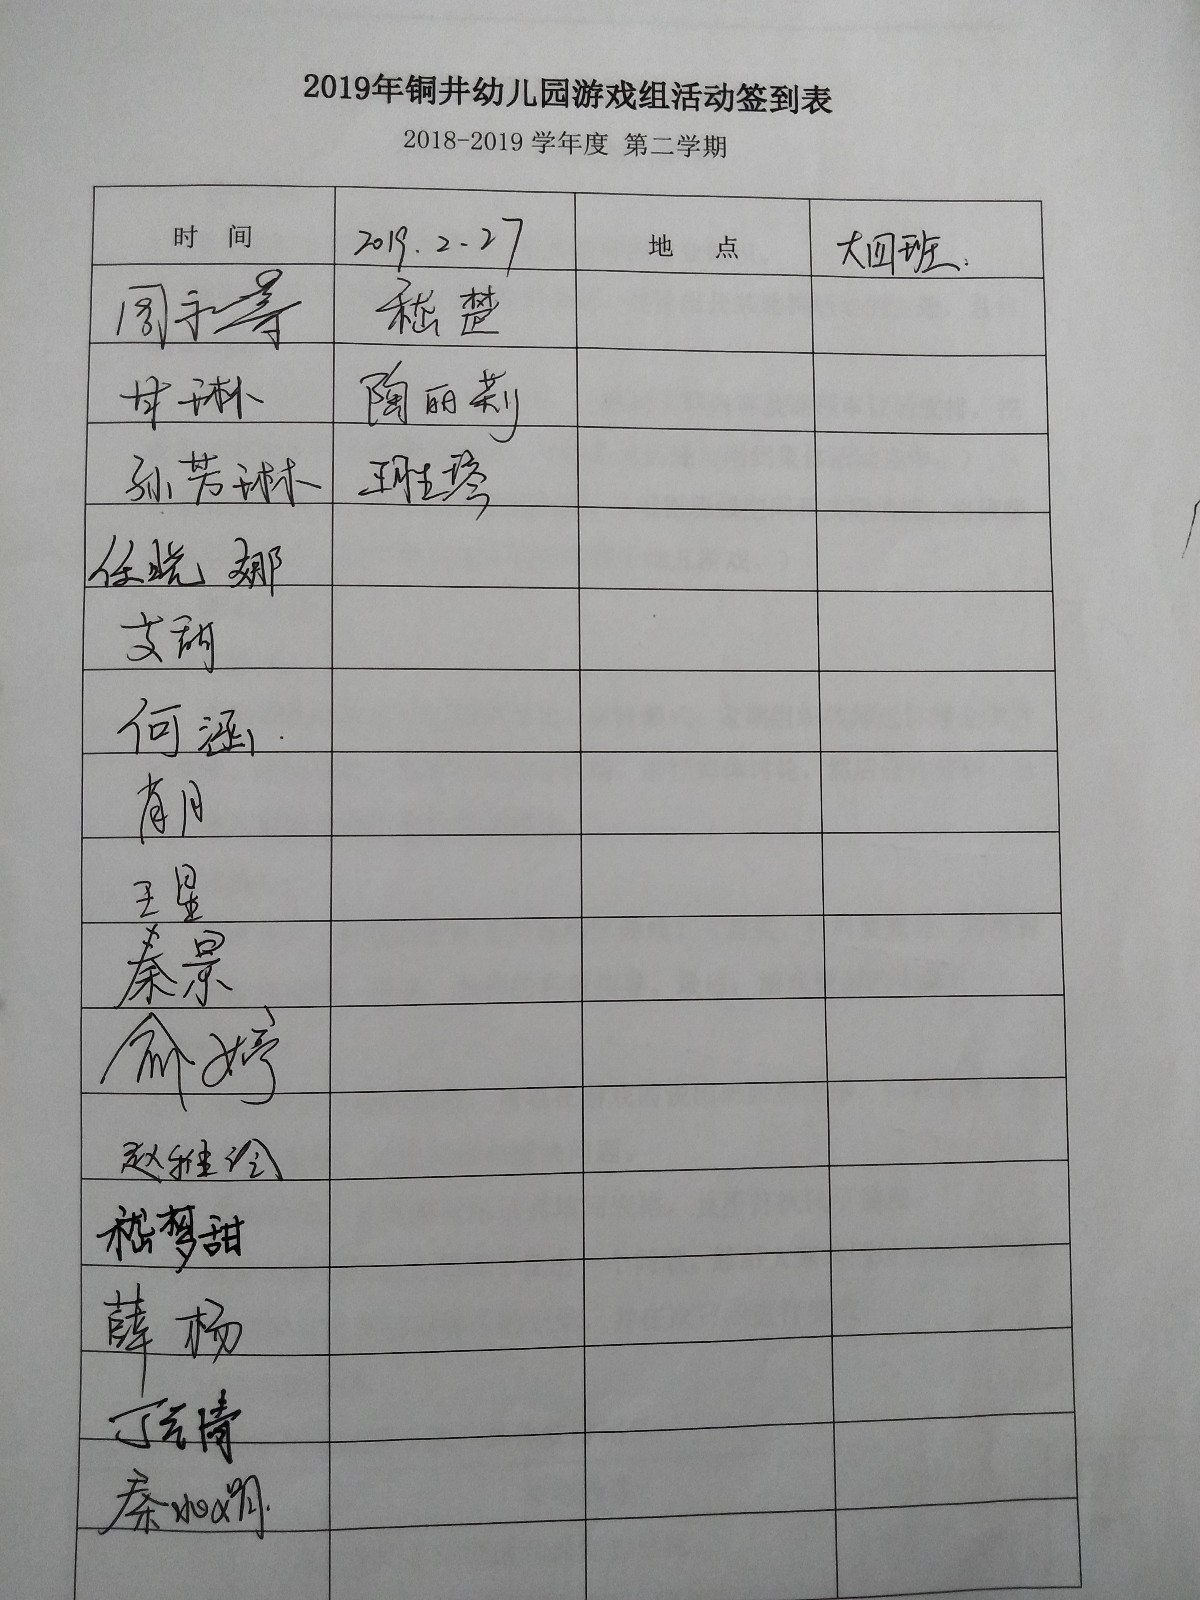 2019年铜井幼儿园游戏组活动签到表
2018-2019 学年度 第二学期
时 间 2019.2-27 地 点 大四班.
嵇楚
甘琳 陶丽莉
孙芳琳
任晓娜
艾甜
何涵.
肖月
王星
秦景
俞婷
赵雅
嵇梦甜
薛杨
丁 清
秦